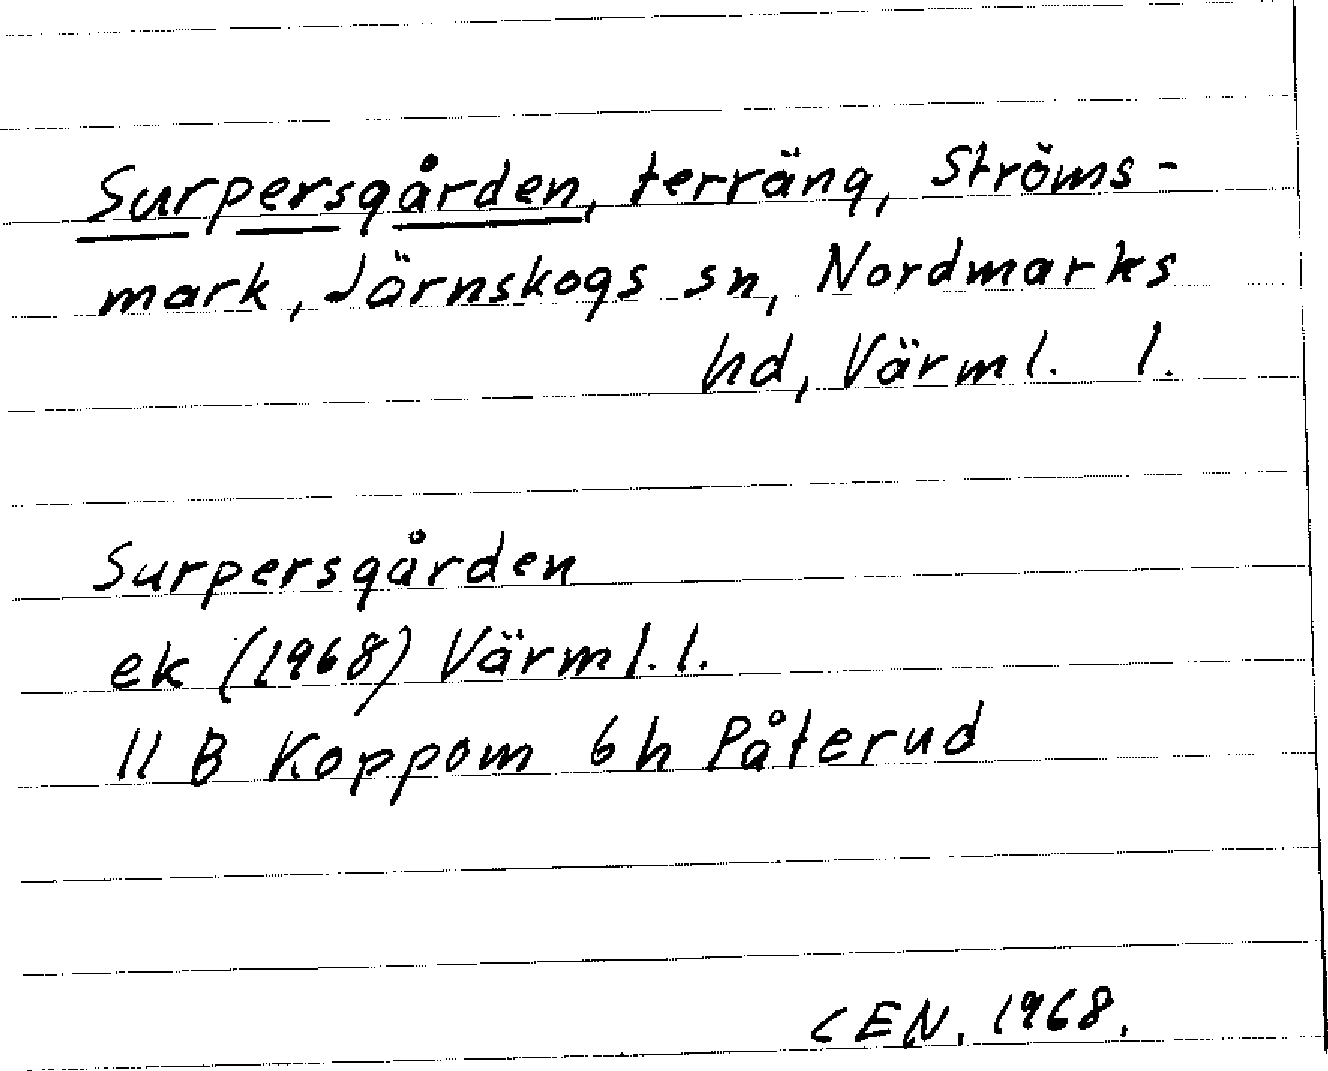 Surpersgården, terräng, Ströms-
mark, Järnskogs sn, Nordmarks
hd, Värml. l.
Surpersgården
ek (1968) Värml. l.
11 B Koppom 6h Påterud
CEN. 1968.